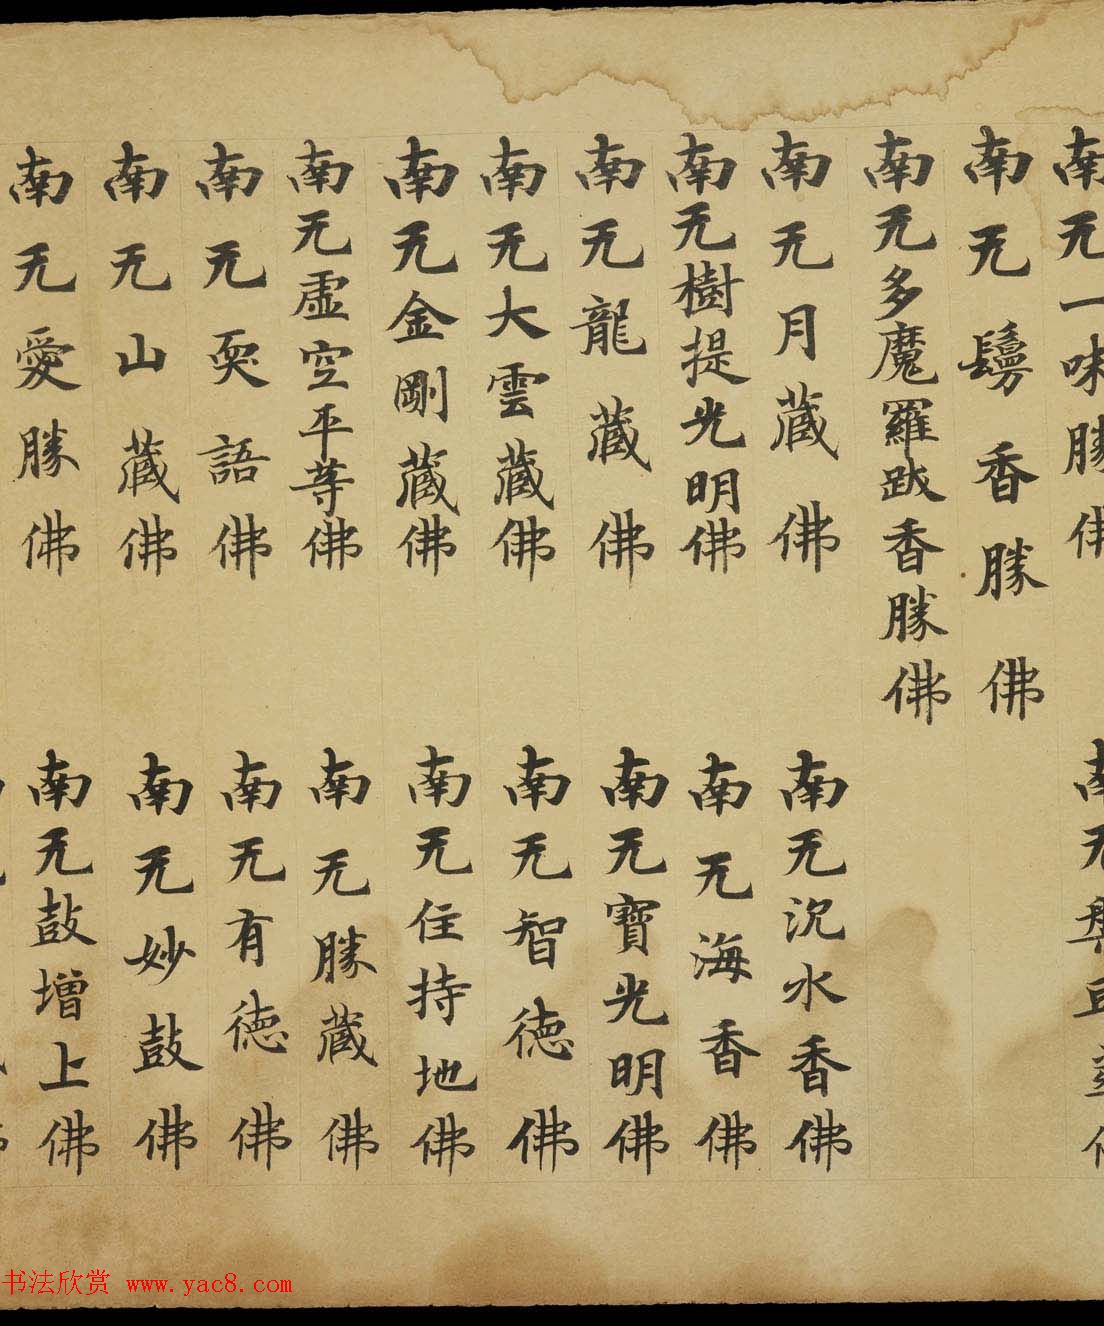 南无一味勝佛
南无
南无鬘香勝佛
南无多魔羅跋香勝佛
南无月藏佛
南无沉水香佛
南无樹提光明佛
南无海香佛
南无龍藏佛
南无寶光明佛
南无大雲藏佛
南无智德佛
南无金剛藏佛
南无住持地佛
南无虛空平等佛
南无勝藏佛
南无耎語佛
南无有德佛
南无山藏佛
南无妙鼓佛
南无愛勝佛
南无鼓增上佛
书法欣赏 www.yac8.com